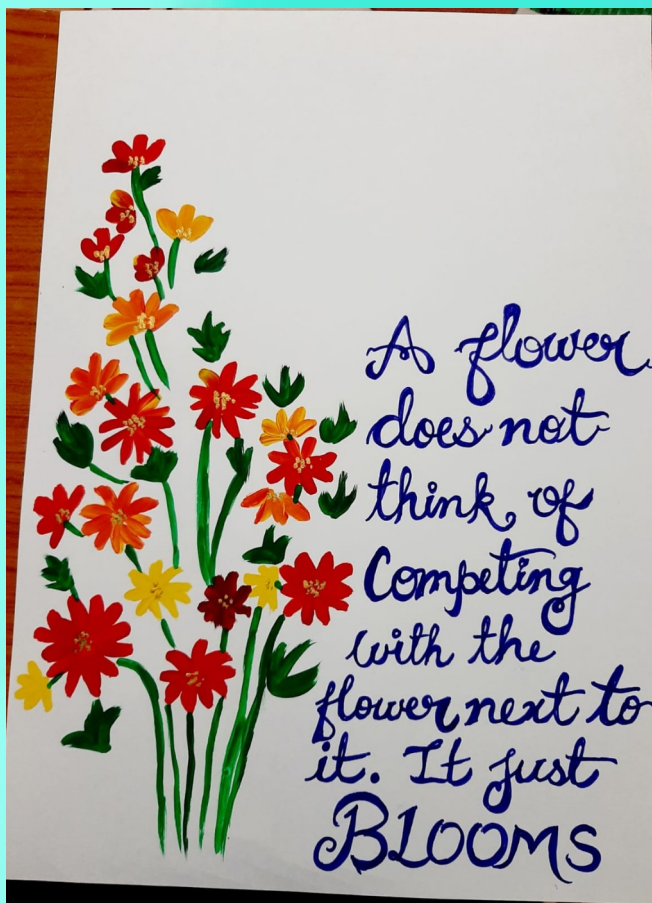 A flower
does not
think of
Competing
with the
flower next to
it. It just
BLOOMS